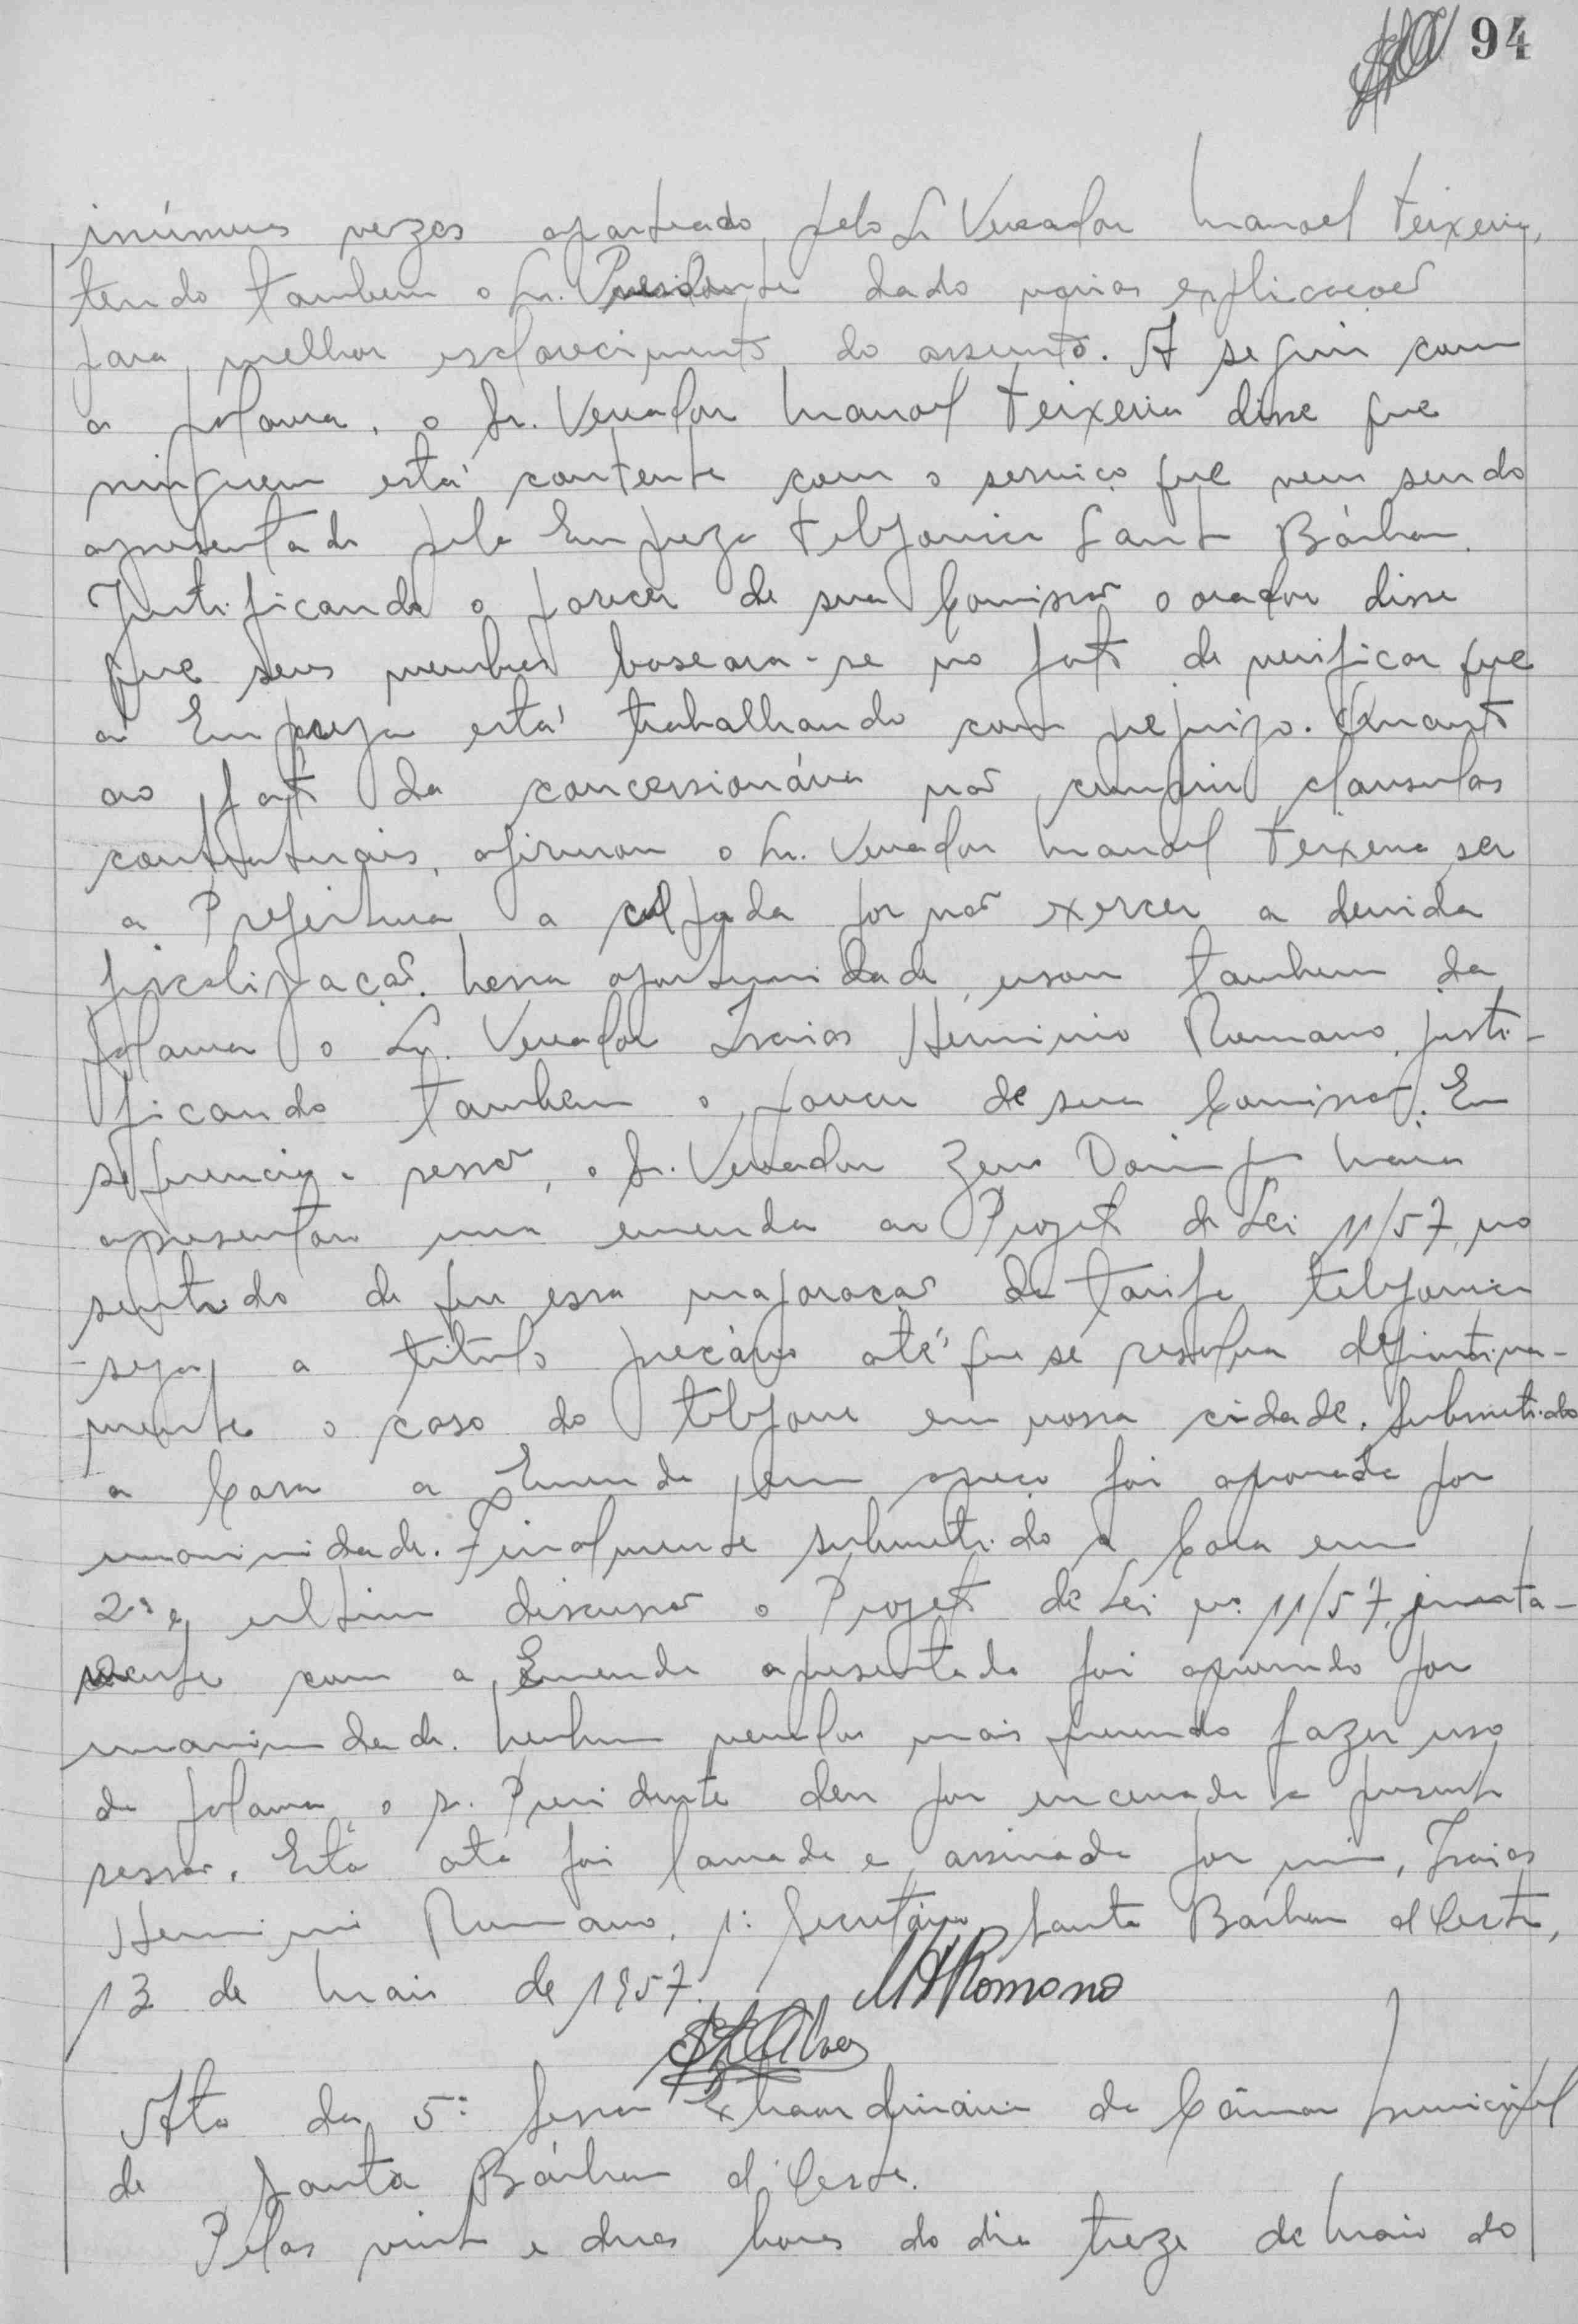 94
inúmeras vezes aparteado pelo Sr Vereador Manoel Teixeira,
tendo tambem o Sr. Presidente dado varias explicações
para melhor esclarecimento do assunto. A seguir com
a palavra, o Sr. Vereador Manoel Teixeira disse que
ninguem está contente com o serviço que vem sendo
apresentado pela Empreza Telefonica Santa Bárbara.
Justificando o parecer de sua Comissão o orador disse
que seus membros basearam-se no fato de verificar que
a Empreza está trabalhando com prejuizo. Quanto
ao fato da concessionária não cumprir clausulas
contratuais, afirmou o Sr. Vereador Manoel Teixeira ser
a Prefeitura a culpada por não exercer a devida
fiscalização. Nessa oportunidade, usou tambem da
palavra o Sr. Vereador Isaias Herminio Romano, justi-
ficando tambem o parecer de sua Comissão. Em
sequencia a sessão, o Sr. Vereador Zeno Domingos Maia
apresentou uma emenda ao Projeto de Lei 11/57, no
sentido de que essa majoração da tarifa telefonica
seja a titulo precário até que se resolva definitiva-
mente o caso do telefone em nossa cidade. Submetido
a Casa a Emenda em apreço foi aprovada por
unanimidade. Finalmente submetido a Casa em
2ª e ultima discussão o Projeto de Lei nº 11/57, junta-
mente com a Emenda apresentada foi aprovado por
unanimidade. Nenhum vereador mais querendo fazer uso
da palavra o sr. Presidente deu por encerrada a presente
sessão. Esta ata foi lavrada e assinada por mim, Isaias
Herminio Romano, 1º Secretário, Santa Bárbara d'Oeste,
13 de Maio de 1957. MHRomano
Ata da 5ª Sessão Extraordinária da Câmara Municipal
de Santa Bárbara d'Oeste.
Pelas vinte e duas horas do dia treze de Maio do